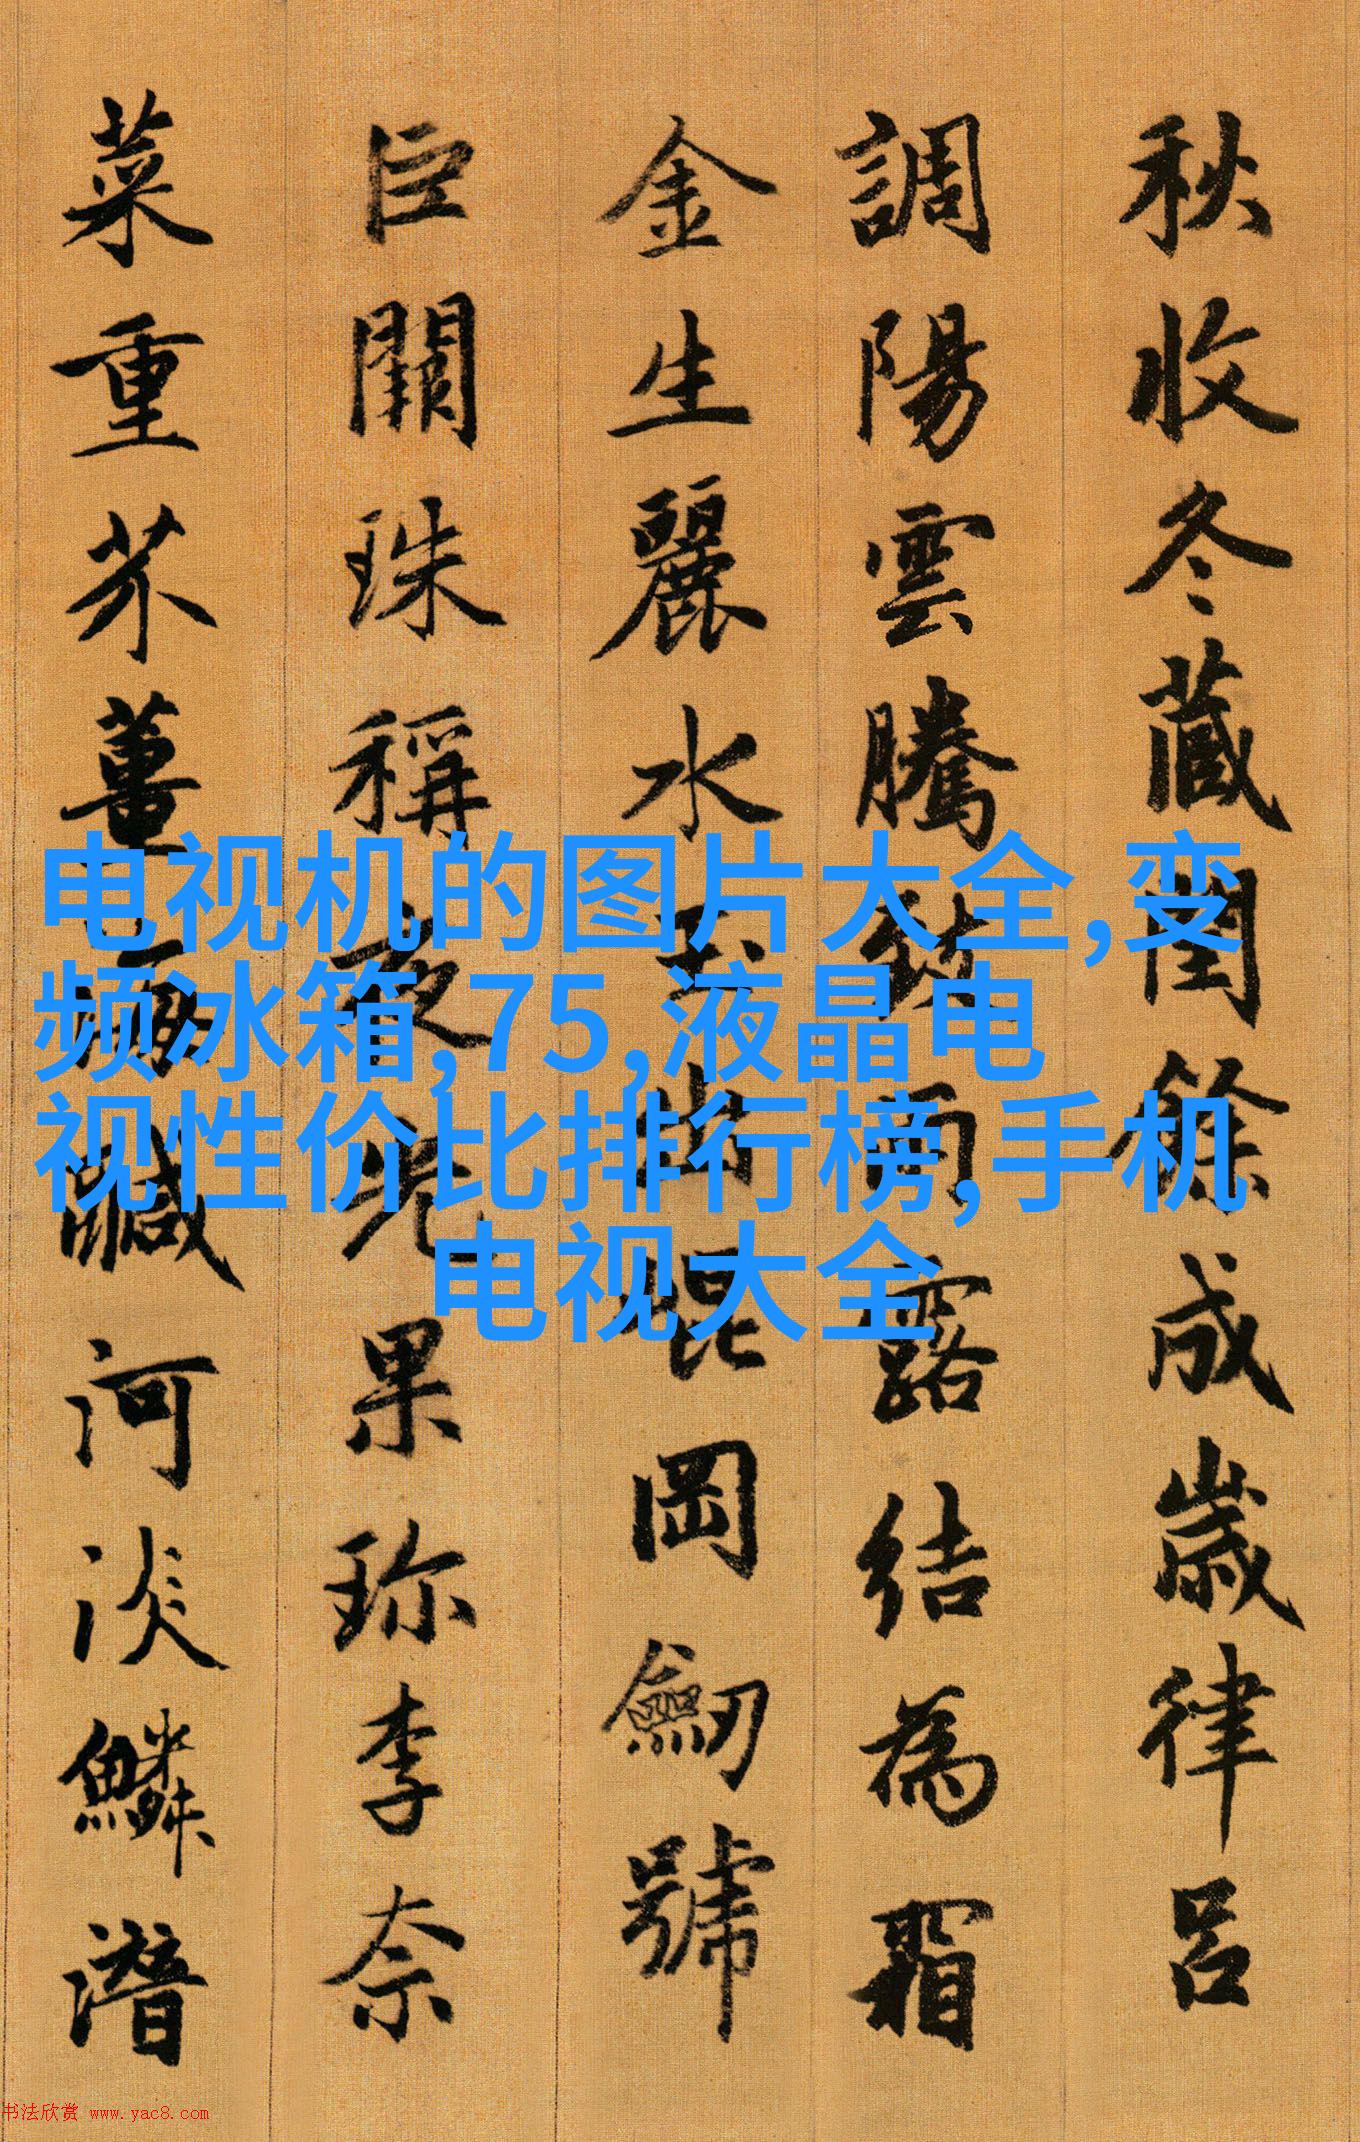 秋收冬藏閏餘成歲律呂
調陽雲騰致雨露結為霜
金生麗水玉出崐岡劒號
巨闕珠稱夜光果珍李奈
菜重芥薑海鹹河淡鱗潛
电视机的图片大全,变
频冰箱,75,液晶电
视性价比排行榜,手机
电视大全
书法欣赏 www.yac8.com